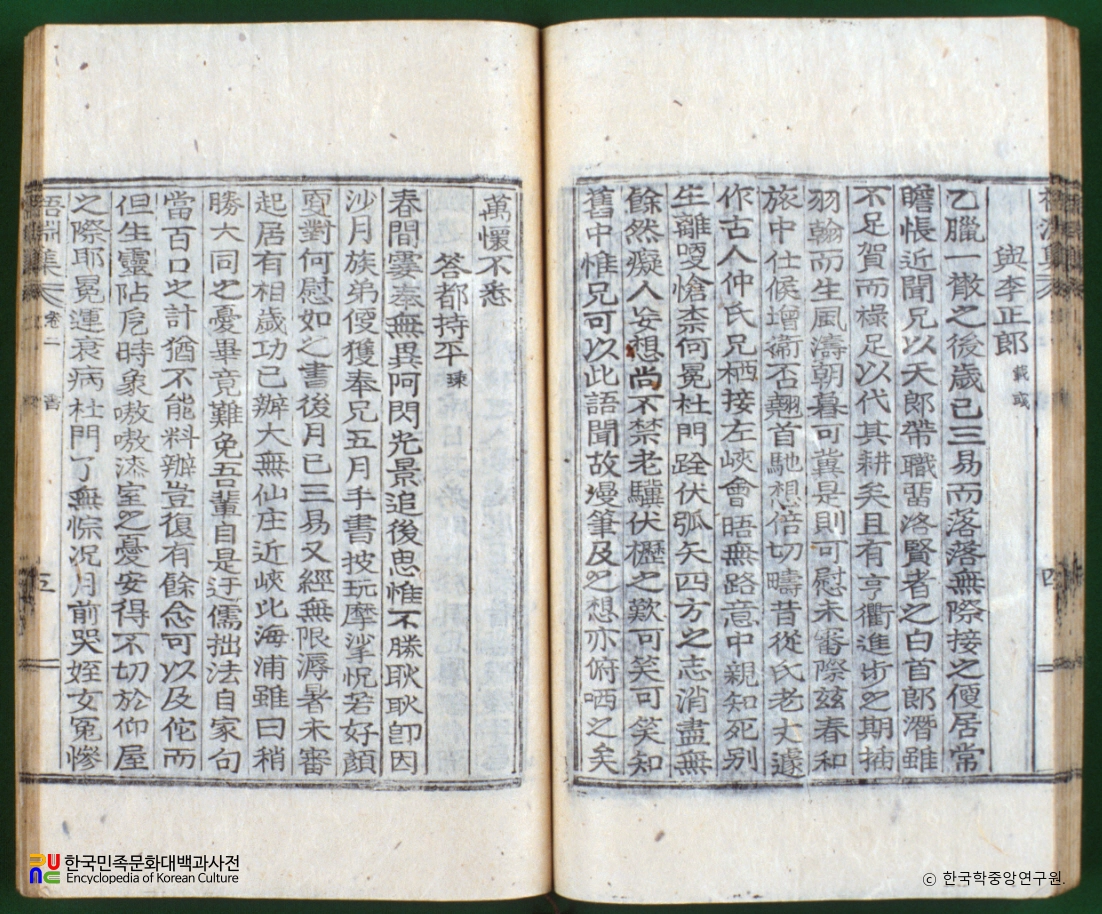 與李正郎 載彧
乙臘一撤之後歲已三易而落落無際接之便居常
瞻悵近聞兄以天郎帶職翡洛賢者之白首郎潛雖
不足賀而祿足以代其耕矣且有亨衢進步之期插
羽翰而生風濤朝暮可冀是則可慰未審際玆春和
旅中仕候增衛否翹首馳想倍切疇昔從氏老丈遽
作古人仲氏兄栖接左峽會晤無路意中親知死別
生離嗄愴柰何冕杜門跧伏弧矢四方之志消盡無
餘然癡人妄想尚不禁老驥伏櫪之歎可笑可笑知
舊中惟兄可以此語聞故漫筆及之想亦俯哂之矣
四
萬懷不悉
答都持平 㻋
春間霎奉無異阿閃光景追後思惟不勝耿耿卽因
沙月族弟便獲奉兄五月手書披玩摩挲怳若好顔
更對何慰如之書後月已三易又經無限溽暑未審
起居有相歲功已辦大無仙庄近峽比海浦雖曰稍
勝大同之憂畢竟難免吾輩自是迂儒拙法自家句
當百口之計猶不能料辦豈復有餘念可以及佗而
但生靈阽危時象嗷嗷漆室之憂安得不切於仰屋
之際耶冕運衰病杜門了無悰况月前哭姪女冤慘
集 卷二 書 五
한국민족문화대백과사전
Encyclopedia of Korean Culture
© 한국학중앙연구원.